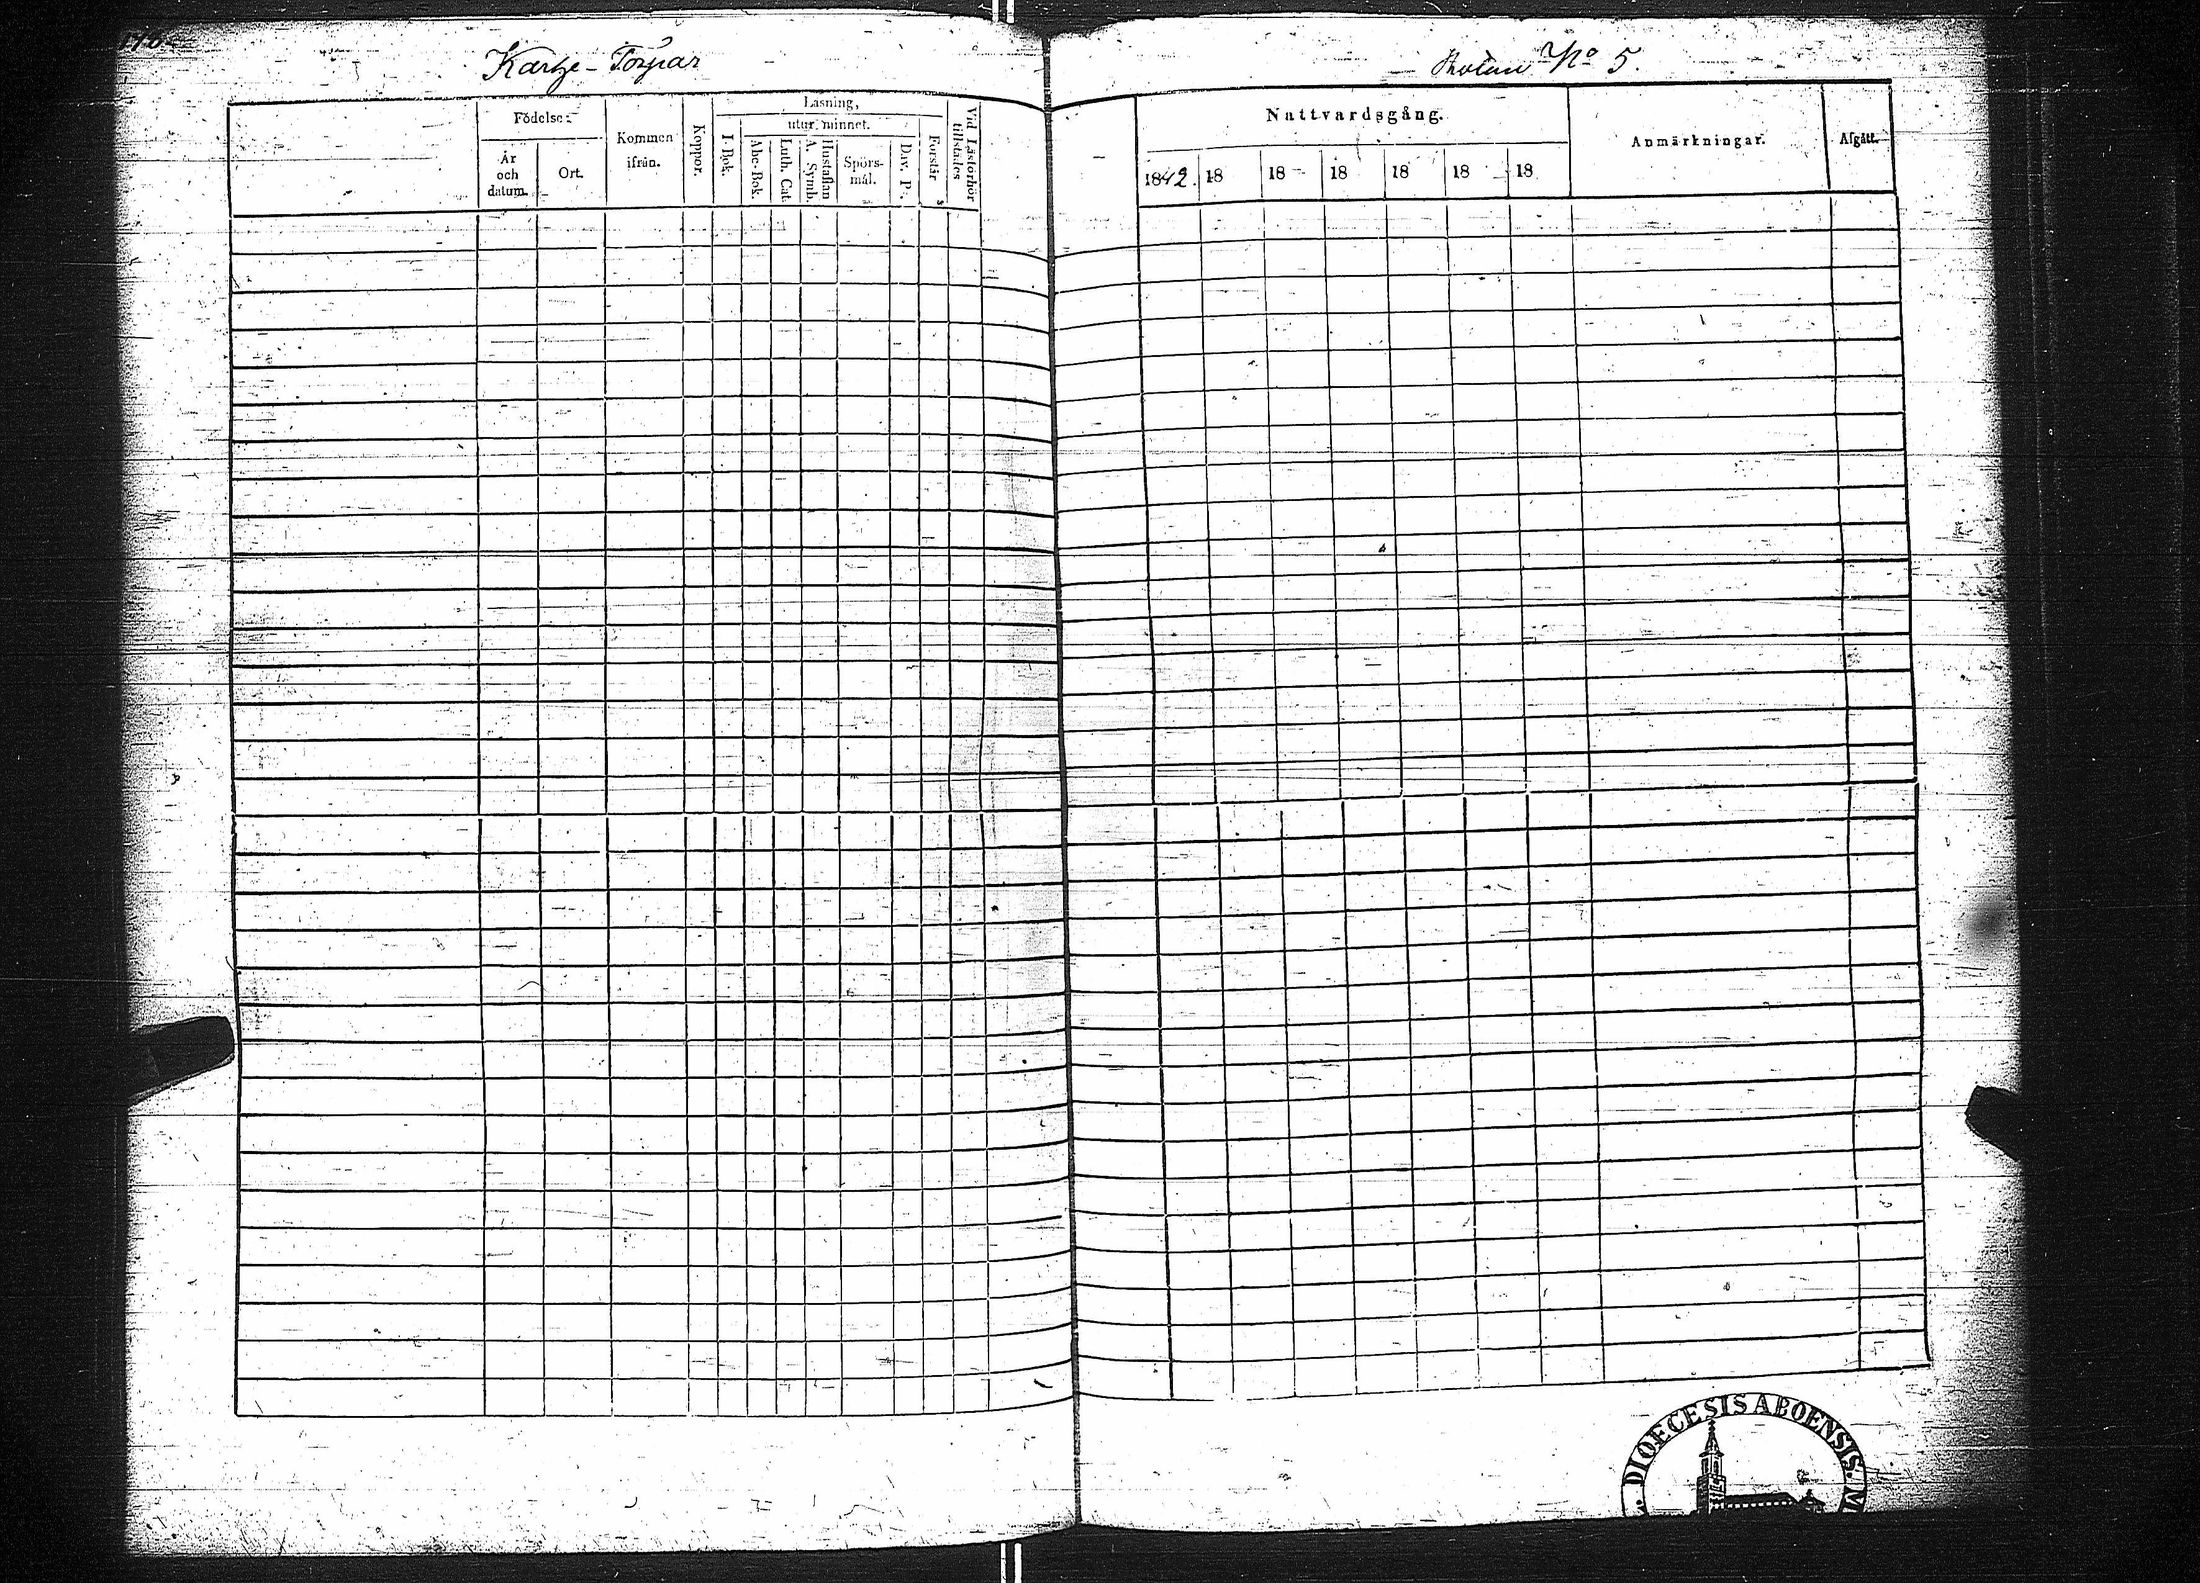 Kartze-Torpar
Roten No 5.
Födelse-
År
och
datum.
Ort.
Kommen
ifrån.
Koppor.
Läsning,
utur minnet.
I Bok.
Abc-Bok.
Luth. Cat.
Hustaflan
A. Symb.
Spörs-
mål.
Dav. Ps.
Förstår
Vid Läsförhör
tillstädes
Nattvardsgång.
1842. 18 18 18 18 18 18
Anmärkningar.
Afgått.
DIOECESIS ABOENSIS.